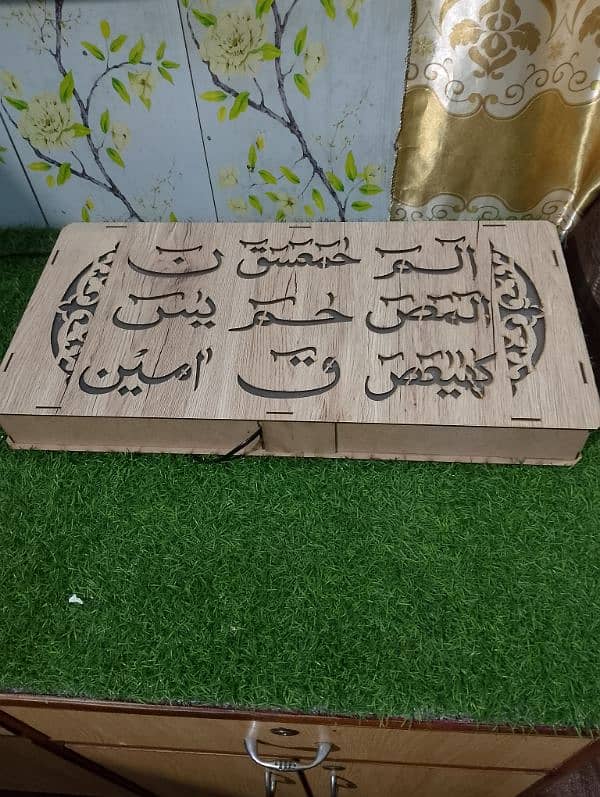 الم حمعسق ن
المص حم يس
كهيعص ق امين